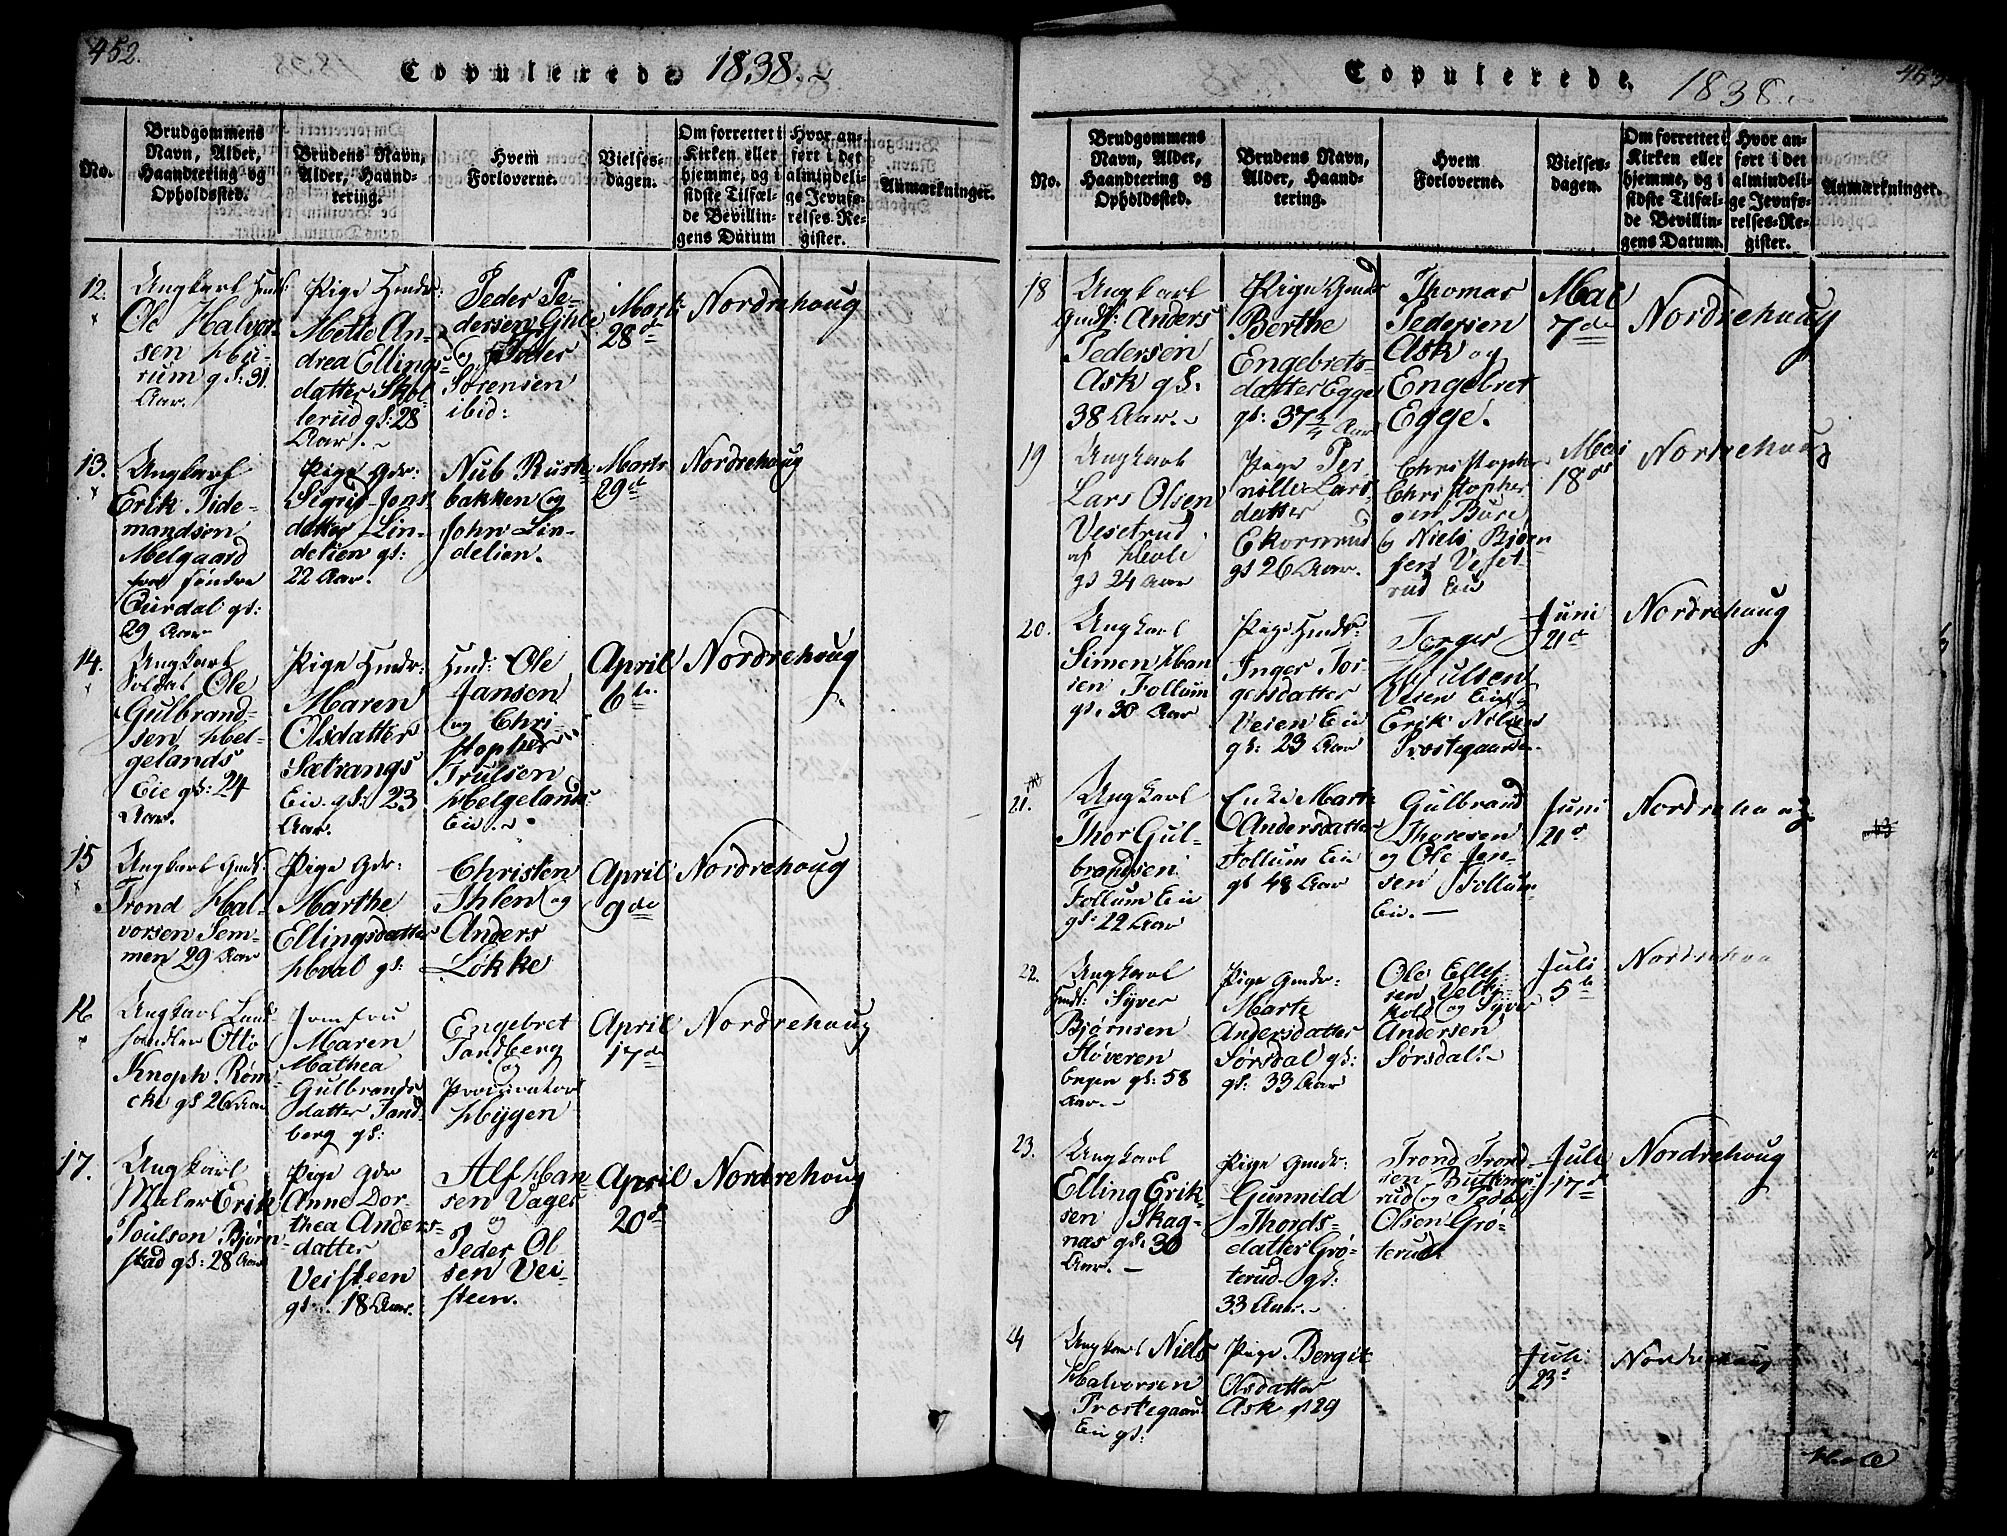 452.
Copulerede 1838.
No.
Brudgommens
Navn, Alder,
Haandtering og
Opholdssted.
Brudens Navn,
Alder, Haand-
tering.
Hvem
Forloverne.
Vielses-
dagen.
Om forrettet i
Kirken eller
hjemme, og i
sidste Tilfæl-
de Bevillin-
gens Datum
Hvor an-
ført i det
almindeli-
ge Jevnfø-
relses-Re-
gister.
Anmærkninger.
12.
Ungkarl
Ole Halvor-
sen
rum gs: 31
Aar.
Pige
Mette An-
drea Ellings-
datter Skol-
lerud gs: 28
Aar.
Peder Pe-
dersen Gihle
og Peder
Sørensen
ibid:
Marti
28de
Nordrehoug
13.
Ungkarl
Erik Tide-
mandsen
Melgaard
søndre
Ourdal gs:
29 Aar
Pige Gdr:
Sigrid Jons
datter Lin-
delien gs:
22 Aar.
Nub Rust-
bakken og
John Lin-
delien.
Marti
29de
Nordrehoug
14.
Ungkarl
Soldat Ole
Gulbrand-
sen Hel-
gelands
Eie gs: 24
Aar.
Pige Hmdr:
Maren
Olsdatter
Sætrangs
Eie gs: 23
Aar.
Hmd: Ole
Jansen
og Chri-
stopher
Trulsen
Helgelands
Eie.
April
6te
Nordrehoug
15
Ungkarl Gmds:
Trond Hal-
vorsen Sem-
men 29 Aar
Pige Gdr:
Marthe
Ellingsdatter
Hval gs:
Christen
Ihlen og
Anders
Løkke
April
9de
Nordrehoug
16
Ungkarl Land-
handler Otto
Knoph Røm-
cke gs 26 Aar
Jomfru
Maren
Mathea
Gulbrands
datter Tand-
berg gs:
Engebret
Tandberg
og
Procurator
Hygen
April
17de
Nordrehoug
17.
Ungkarl
Maler Erik
Poulsen Bjørn-
stad gs: 28 Aar
Pige Gdr
Anne Dor-
thea Anders-
datter
Veisteen
gs: 18 Aar.
Alf Han-
sen Vager
og
Peder Ol
sen Vei-
steen.
April
20de
Nordrehoug
Copulerede. 1838.
453
No.
Brudgommens
Navn, Alder,
Haandtering og
Opholdssted.
Brudens Navn,
Alder, Haand-
tering.
Hvem
Forloverne.
Vielses-
dagen.
Om forrettet i
Kirken eller
hjemme, og i
sidste Tilfæl-
de Bevillin-
gens Datum.
Hvor an-
ført i det
almindeli-
ge Jevnfø-
relses-Re-
gister.
Anmærkninger.
18
Ungkarl
Gmds: Anders
Pedersen
Ask gs.
38 Aar.
Pige Gmdr
Berthe
Engebrets-
datter Egge
gs: 37 3/4 Aar
Thomas
Pedersen
Ask og
Engebret
Egge.
Mai
7de
Nordrehoug
19
Ungkarl
Lars Olsen
Vesetrud
af Hole
gs 24 Aar
Pige Per-
nille Lars-
datter
Ekornrud
gs 26 Aar.
Christopher
Christopher
sen Bure
og Niels Bjørn-
sen Veset-
rud Eie
Mai
18de
Nordrehoug
20.
Ungkarl
Simen Han
sen Follum
gs. 30 Aar
Pige Hmdr:
Inger Tor-
gersdatter
Veien Eie
gs: 23 Aar
Torger
Veien Eie og
Erik Nilsen
Præstegaards
Juni
21de
Nordrehoug
21.
Ungkarl
Thor Gul-
brandsen
Follum Eie
gs: 22 Aar
Enke Marte
Andersdatter
Follum Eie
gs 48 Aar
Gulbrand
Thoresen
og Ole Jen-
sen Follum
Eie.
Juni
21de
Nordrehoug
22.
Ungkarl
Syver
Bjørnsen
Støveren
gs: 58
Aar.
Pige Gmdr.
Marte
Andersdatter
Sørsdal gs:
gs: 33 Aar
Ole Ellef-
sen Velt-
kold og Syver
Andersen
Sørsdal.
Juli
5te
Nordrehou
23.
Ungkarl
Elling Erik-
sen Skag-
næs gs: 30
Aar.
Pige Gmdr:
Gunnild
Thords-
datter Grø-
terud gs:
33 Aar.
Trond Trond
sen Butterud
rud og Peder
Olsen Grø-
terud.
Juli
17de
Nordrehoug
24
Ungkarl Niels
Halvorsen
Præstegaard
Eie gs:
Pige Bergit
Olsdatter
Ask gs 29
Juli
23de
Nordrehoug
Hole